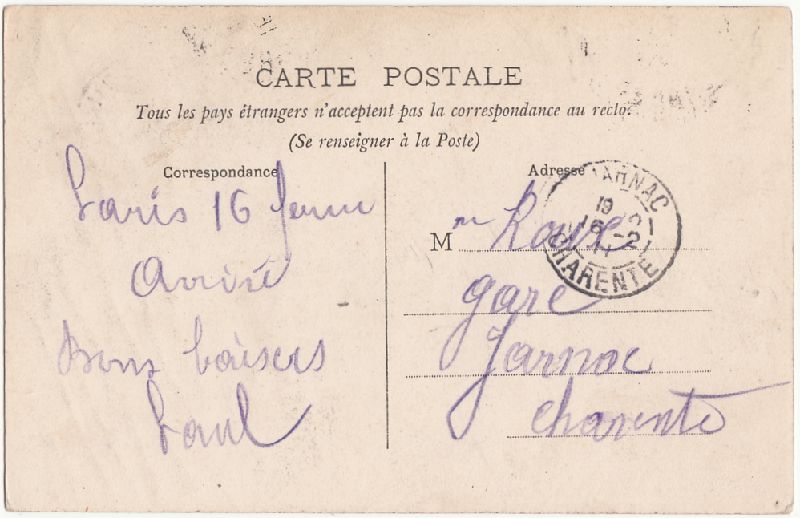 CARTE POSTALE
Tous les pays étrangers n'acceptent pas la correspondance au recto.
(Se renseigner à la Poste)
Correspondance
Paris 16
Arrivé
Bons baisers
Paul
Adresse
M me
gare
Jarnac
Charente
JARNAC
CHARENTE